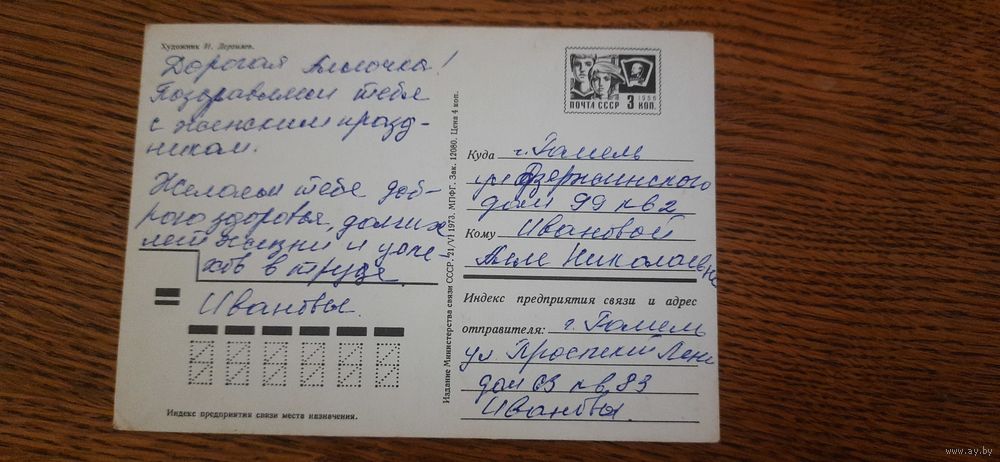 Художник И. Дергилев.
Дорогая Аллочка!
Поздравляем тебя
с женским празд-
ником.
Желаем тебе доб-
рого здоровья, долгих
лет жизни и успе-
хов в труде.
Ивановы.
Индекс предприятия связи места назначения.
Издание Министерства связи СССР. 21/VI 1973. МПФГ. Зак. 12080. Цена 4 коп.
1966
ПОЧТА СССР 3 КОП.
Куда г. Гомель
ул Дзержинского
дом 99 кв 2
Кому Ивановой
Алле Николаевне
Индекс предприятия связи и адрес
отправителя: г. Гомель
ул. Проспект Лени
дом 63 кв. 83
Ивановы.
www.ay.by